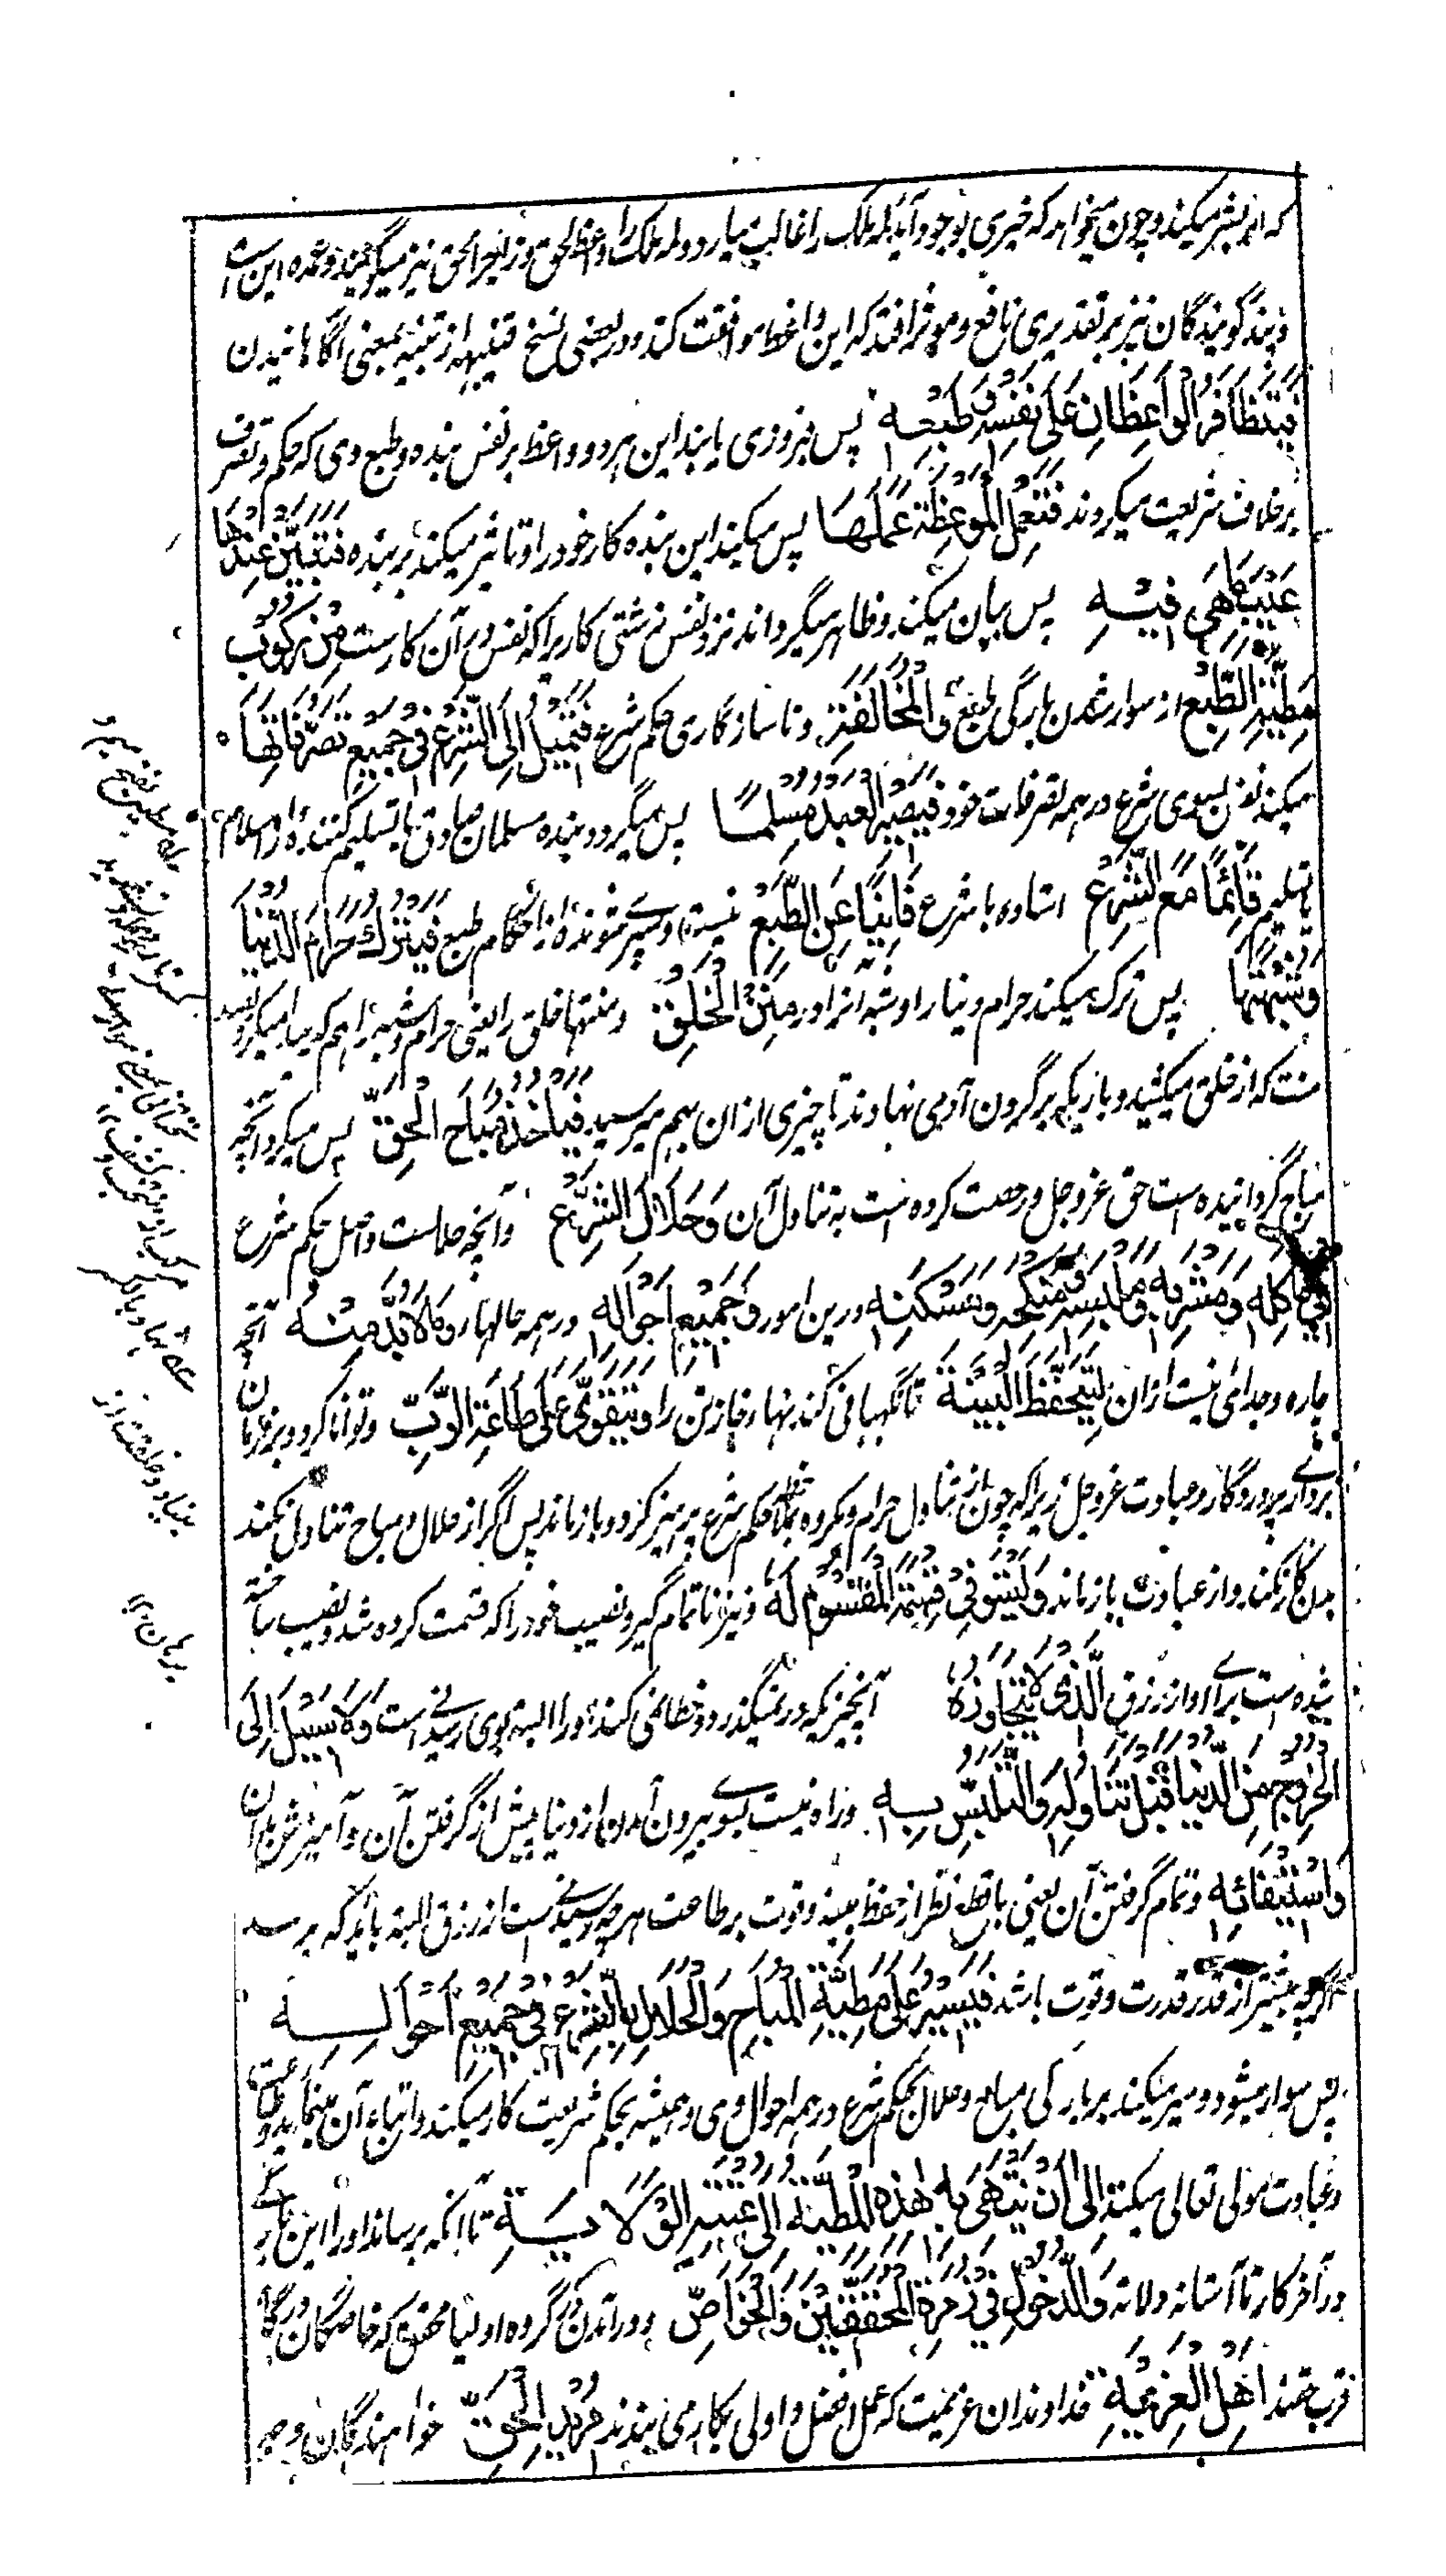 که اثر بشر میکند و چون میخواهد که خیری بوجود آید لمه ملک را غالب می‌آرد و لمه ملک را واعظ الحق و زاجر الحق نیز میگویند و عمده این است
و پند گویندگان نیز بر تقدیری نافع و موثر افتد که این واعظ موافقت کند و در بعضی نسخ فتنبیه از تنبیه بمعنی آگاهانیدن
فَیَتَظَافَرُ الْوَاعِظَانِ عَلٰی نَفْسِهٖ وَطَبْعِهٖ پس فیروزی یابند این هر دو واعظ بر نفس بنده و طبع وی که حکم و تصرف
بر خلاف شریعت میکردند فَتَعْمَلُ الْمَوْعِظَةُ عَمَلَهَا پس میکند این پند کار خود را و تاثیر میکند بر بنده فَتُبَیِّنُ عِنْدَهَا
عَیْبَ مَا هِیَ فِیْهِ پس بیان میکند و ظاهر میگرداند نزد نفس زشتی کار را که نفس در آن کار است مِنْ رُکُوْبِ
مَطِیَّةِ الطَّبْعِ از سوار شدن بارگی طبع وَالْمُخَالَفَةِ و ناسازگاری حکم شرع فَتَمِیْلُ اِلَی الشَّرْعِ فِیْ جَمِیْعِ تَصَرُّفَاتِهَا
میکند نفس بسوی شرع در همه تصرفات خود فَیَصِیْرُ الْعَبْدُ مُسْلِمًا پس میگردد بنده مسلمان صادق یا تسلیم کننده از اسلام
یا تسلیم قَائِمًا مَعَ الشَّرْعِ استاده با شرع فَانِیًا عَنِ الطَّبْعِ نیست و سپری شونده از احکام طبع فَیَتْرُكُ حَرَامَ الدُّنْیَا
وَشُبْهَتَهَا پس ترک میکند حرام دنیا را و شبه آنرا وَمِنَنَ الْخَلْقِ و منتها خلق را یعنی حرام و شبه را هم که میگیرد
منت که از خلق میکشید و باریکه بر گردن آدمی نهادند تا چیزی از ان بهم میرسید فَیَاْخُذُ مُبَاحَ الْحَقِّ پس میگیرد آنچه
مباح گردانیده است حق عز و جل و رخصت کرده است به تناول آن وَحَلَالَ الشَّرْعِ و آنچه حلال است و اصل حکم شرع
فِیْ مَاْکَلِهٖ وَمَشْرَبِهٖ وَمَلْبَسِهٖ وَمَنْکَحِهٖ وَمَسْکَنِهٖ درین امور وَجَمِیْعِ اَحْوَالِهٖ و در همه حالها وَمَا لَا بُدَّ مِنْهُ آنچه
چاره و جدائی نیست از ان لِتَحَفُّظِ الْبِنْیَةِ تا نگهبانی کند بنهاد خانه تن را وَیَتَقَوّٰی عَلٰی طَاعَةِ الرَّبِّ و توانا گردد بر فرمان
برداری پروردگار و عبادت عز و جل زیرا که چون از تناول حرام و مکروه بحکم شرع پرهیز کرد و باز ماند پس اگر از حلال و مباح تناول نکند
بدن کار نکند و از عبادت باز ماند وَلِیَسْتَوْفِیَ قِسْمَهُ الْمَقْسُوْمَ لَهُ و نیز تا تمام گیرد نصیب خود را که قسمت کرده شد و نصیب ساخته
شده است برای او از رزق الَّذِیْ لَا یَتَجَاوَزُهُ آنچنان که در نمیگذرد و خطا نمی کند او را البته بوی رسیدنی است وَلَا سَبِیْلَ اِلَی
الْخُرُوْجِ مِنَ الدُّنْیَا قَبْلَ تَنَاوُلِهٖ وَالتَّلَبُّسِ بِهٖ و راه نیست بسوی بیرون آمدن از دنیا پیش از گرفتن آن و آمیزش بدان
وَاسْتِیْفَائِهٖ و تمام گرفتن آن یعنی با قطع نظر از حفظ بنیه و قوت بر طاعت هر چه رسیدنی است از رزق البته باید که برسد
اگرچه بیشتر از قدر قدرت و قوت باشد فَیَسِیْرُ عَلٰی مَطِیَّةِ الْمُبَاحِ وَالْحَلَالِ بِالشَّرْعِ فِیْ جَمِیْعِ اَحْوَالِهٖ
پس سوار میشود و سیر میکند بر بارگی مباح و حلال بحکم شرع در همه احوال وی و همیشه بحکم شریعت کار میکند و اتباع آن مینماید
و عبادت مولی تعالی میکند اِلٰی اَنْ تَنْتَهِیَ بِهٖ هٰذِهِ الْمَطِیَّةُ اِلٰی عَتَبَةِ الْوِلَایَةِ تا آنکه برساند او را این بارگی
در آخر کار تا آستانه ولایت وَالدُّخُوْلِ فِیْ زُمْرَةِ الْمُحَقِّقِیْنَ وَالْخَوَاصِّ و درآمدن در گروه اولیا محقق که خاصگان درگاه
قرب حقند اَهْلِ الْعَزِیْمَةِ خداوندان عزیمت که عمل افضل و اولی بکار می بندند مُرِیْدِی الْحَقِّ خواهندگان وجه